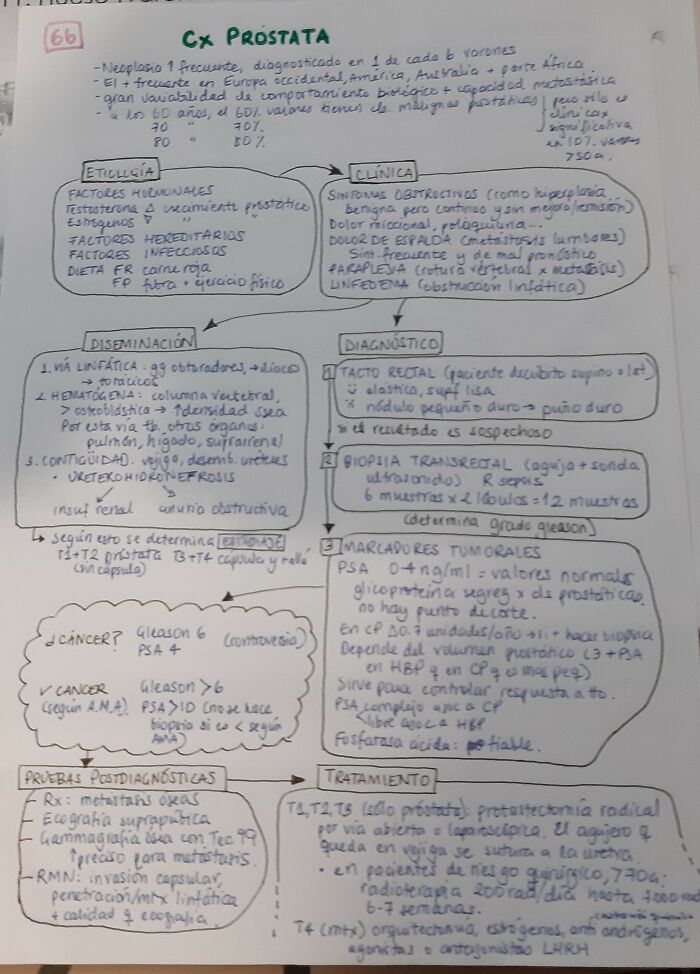 66
Cx PRÓSTATA
- Neoplasia + frecuente, diagnosticado en 1 de cada 6 varones
- El + frecuente en Europa occidental, América, Australia + parte África.
- gran variabilidad de comportamiento biológico + capacidad metastásica
- a los 60 años, el 60% varones tienen cls. malignas prostáticas
70 " 70%
80 " 80%
pero sólo es
clínicax
significativa
en 10% varones
>50a.
ETIOLOGÍA
FACTORES HORMONALES
Testosterona △ crecimiento prostático
Estrógenos ▽ " "
FACTORES HEREDITARIOS
FACTORES INFECCIOSOS
DIETA FR carne roja
FP fibra + ejercicio físico
CLÍNICA
SINTOMAS OBSTRUCTIVOS (como hiperplasia
benigna pero continuo y sin mejora/remisión)
Dolor miccional, polaquiuria...
DOLOR DE ESPALDA (metástasis lumbares)
Sint. frecuente y de mal pronóstico
PARAPLEJIA (rotura vértebral x metástasis)
LINFEDEMA (obstrucción linfática)
DISEMINACIÓN
1. VÍA LINFÁTICA: gg obturadores, → iliaco
→ torácicos
2. HEMATÓGENA: columna vertebral,
> osteoblástica → ↑densidad ósea
Por esta vía tb. otras órganos:
pulmón, hígado, suprarrenal
3. CONTIGÜIDAD: vejiga, desemb. uréteres
• URETEROHIDRONEFROSIS
insuf renal anuria obstructiva
según esto se determina ESTADIAJE
T1+T2 próstata T3+T4 cápsula y +allá
(sin cápsula)
DIAGNÓSTICO
1 TACTO RECTAL (paciente decúbito supino o lat)
elástica, supf lisa
nódulo pequeño duro → puño duro
si el resultado es sospechoso
2 BIOPSIA TRANSRECTAL (aguja + sonda
ultrasonido) R sepsis
6 muestras x 2 lóbulos = 12 muestras
(determina grado gleason)
3 MARCADORES TUMORALES
PSA 0-4 ng/ml = valores normales
glicoproteina segreg x cls prostáticas
no hay punto de corte.
En CP △0.7 unidades/año → si + hacer biopsia
Depende del volumen prostático (3 + PSA
en HBP q en CP q es más peq)
Sirve para controlar respuesta a tto.
PSA complejo asoc a CP
libre asoc a HBP
Fosfatasa ácida: fiable.
¿CÁNCER? Gleason 6
PSA 4
(controversia)
✓ CANCER Gleason >6
(según A.M.A) PSA >10 (no se hace
biopsia si es < según
AMA)
PRUEBAS POSTDIAGNÓSTICAS
- Rx: metástasis óseas
- Ecografía suprapúbica
- Gammagrafía ósea con Tec 99
↑preciso para metástasis.
- RMN: invasión capsular,
penetración/mtx linfática
+ calidad q ecografía.
TRATAMIENTO
T1, T2, T3 (sólo próstata): prostatectomía radical
por vía abierta o laparoscópica. El agujero q
queda en vejiga se sutura a la uretra.
• en pacientes de riesgo quirúrgico, >70a:
radioterapia 200rad/día hasta 7000 rad
6-7 semanas.
T4 (mtx) orquiectomía, estrógenos, anti andrógenos,
agonistas o antagonistas LHRH